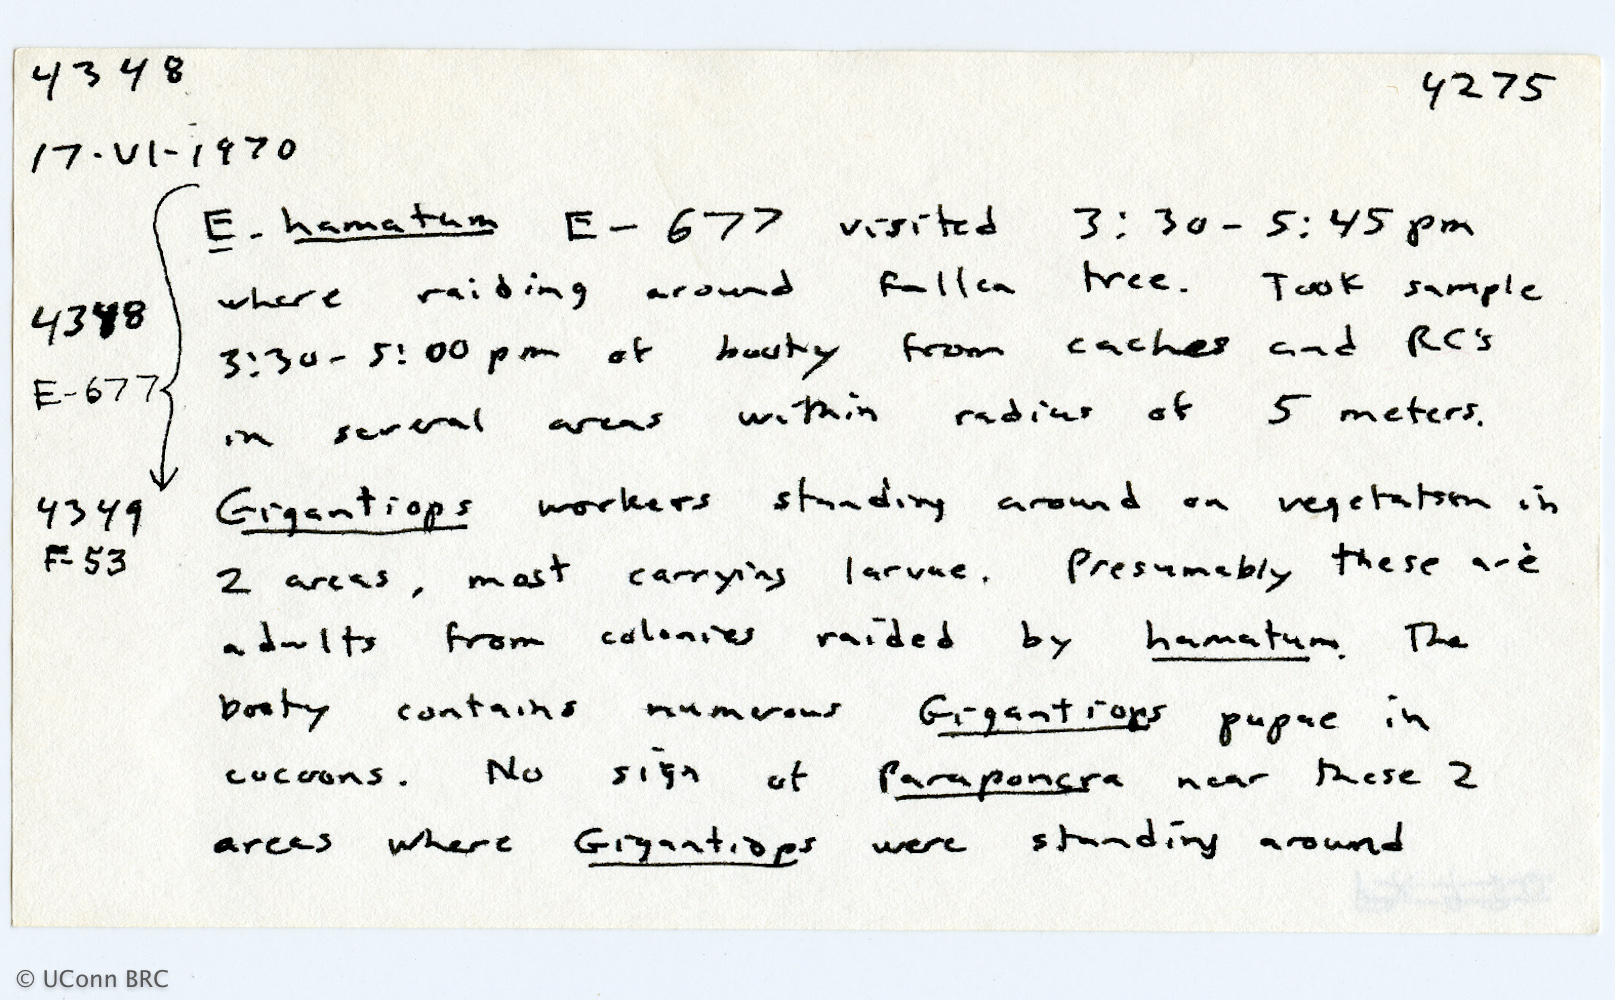 4348 4275
17-VI-1970
E. hamatum E-677 visited 3:30-5:45 pm
where raiding around fallen tree. Took sample
4348 3:30-5:00 pm of booty from caches and RC's
E-677
in several areas within radius of 5 meters.
4349 Gigantiops workers standing around on vegetation in
F-53 2 areas, most carrying larvae. Presumably these are
adults from colonies raided by hamatum. The
booty contains numerous Gigantiops pupae in
cocoons. No sign of Paraponera near these 2
areas where Gigantiops were standing around
© UConn BRC